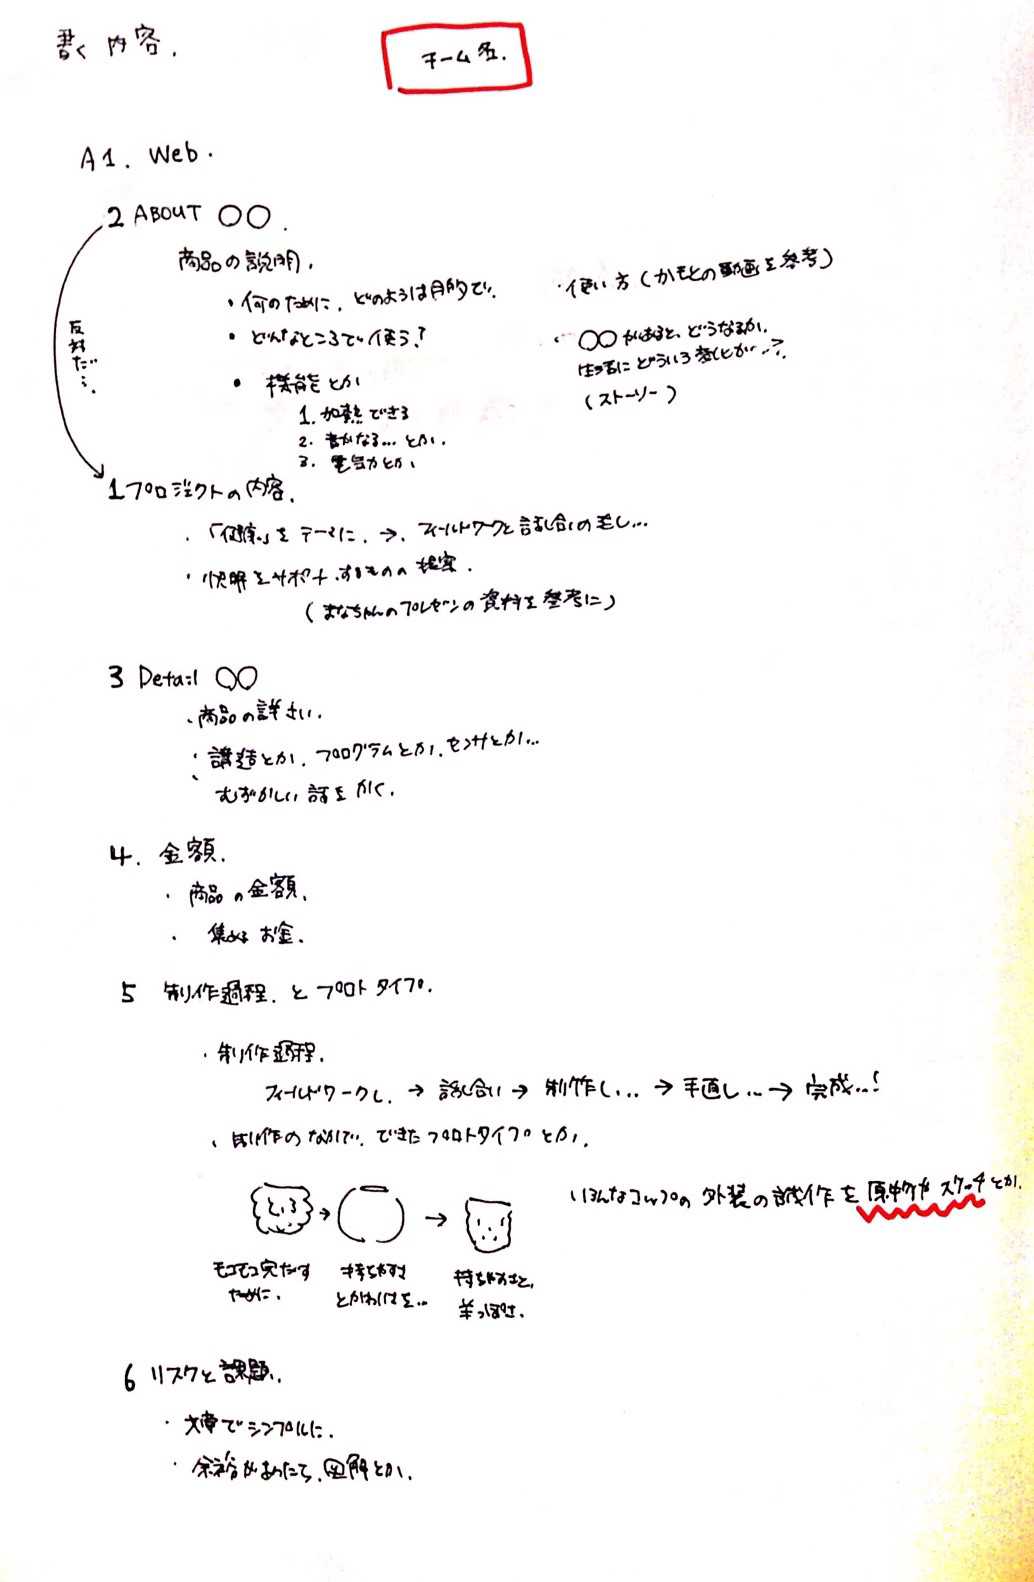 書く内容.
チーム名.
A1. Web.
2 ABOUT ○○.
商品の説明.
・何のために、どのような目的で.
・どんなところで使う?
・機能とか
1. 加熱できる
2. 音がなる... とか.
3. 電気力とか
・使い方(かもとの動画を参考)
・○○があると、どうなるか.
生活にどういう変化が...?
(ストーリー)
反対だ...
1 プロジェクトの内容.
・「健康」をテーマに、→、フィールドワークと話し合いの差し...
・快眠をサポート するものの提案.
(まなちゃんのプレゼンの資料を参考に)
3 Detail ○○
・商品の詳さい.
・講造とか、プログラムとか、センサとか...
むずかしい話をかく.
4. 金額.
・商品の金額.
・集める お金.
5 制作過程.とプロトタイプ.
・制作過程.
フィールドワークし、→ 話し合い → 制作し... → 手直し... → 完成...!
・制作のなかで、できたプロトタイプとか、
という → →
モコモコ完たす
ために.
持ちやすさ
とかわいさを...
持ちやすさと、
羊っぽさ.
いろんなコップの外装の試作を原物やスケッチとか.
6 リスクと課題.
・文章でシンプルに.
・余裕があったら、図解とか、